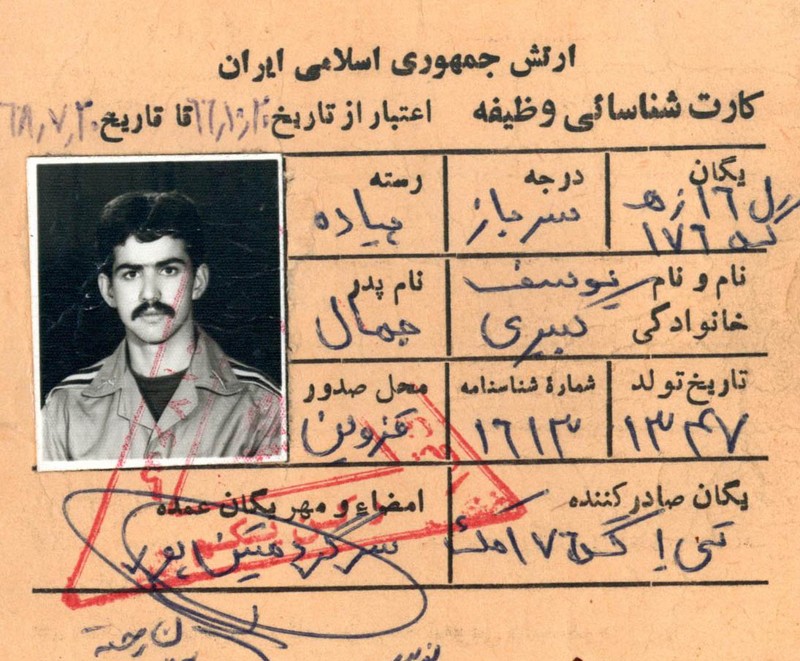 ارتش جمهوری اسلامی ایران
کارت شناسائی وظیفه اعتبار از تاریخ ۶۶٫۱۰٫۲۰ تا تاریخ ۶۸٫۷٫۲۰
یگان درجه رسته
ل ۱۶ زرهی سرباز پیاده
گد ۱۷۶
نام و نام یوسف نام پدر
خانوادگی کبیری جمال
تاریخ تولد شمارهٔ شناسنامه محل صدور
۱۳۴۷ ۱۶۱۳ قزوین
یگان صادر کننده امضاء و مهر یگان عمده
گد ۱۷۶ سرگرد متین پور